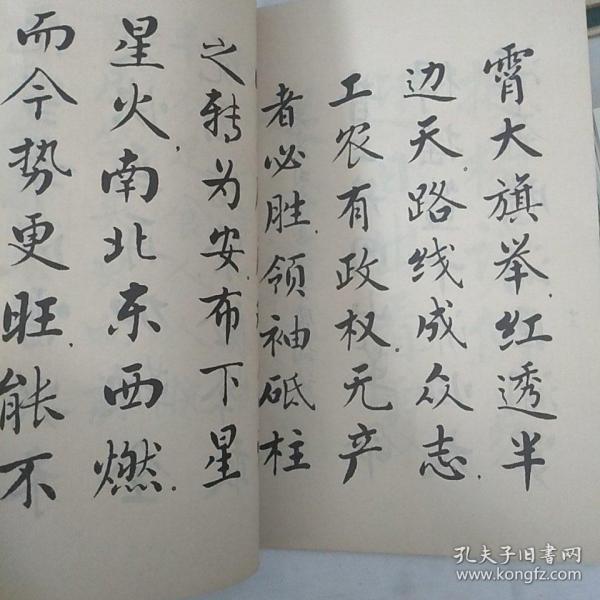 霄大旗举，红透半
边天。路线成众志，
工农有政权。无产
者必胜，领袖砥柱
之，转为安。布下星
星火，南北东西燃。
而今势更旺，能不
孔夫子旧书网
www.kongfz.com